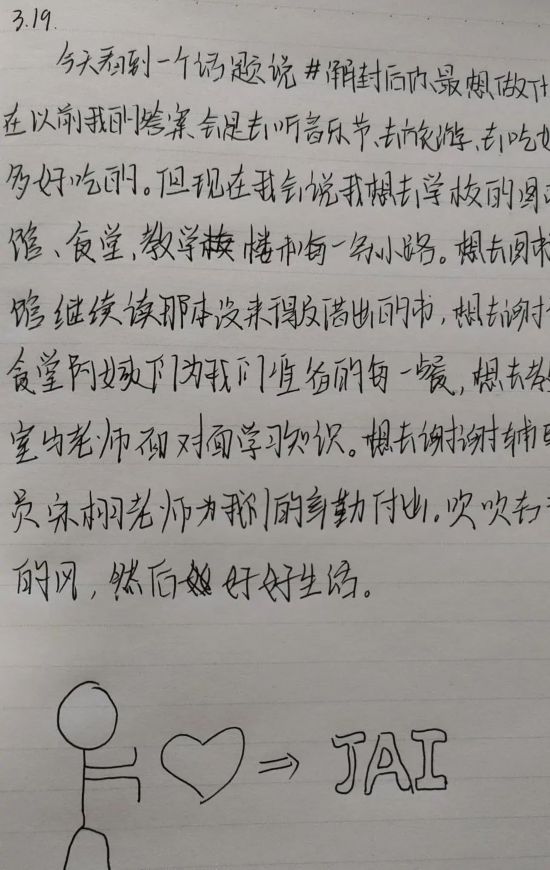 3.19.
今天看到一个话题说#解封后你最想做什
在以前我的答案会是去听音乐节、去旅游、去吃
多好吃的。但现在我会说我想去学校的图
馆、食堂、教学楼和每一条小路。想去图书
馆继续读那本没来得及借出的书,想去谢
食堂阿姨们为我们准备的每一餐,想去教
室与老师面对面学习知识。想去谢谢辅
员宋栩老师为我们的辛勤付出。吹吹
的风,然后好好生活。
JAI